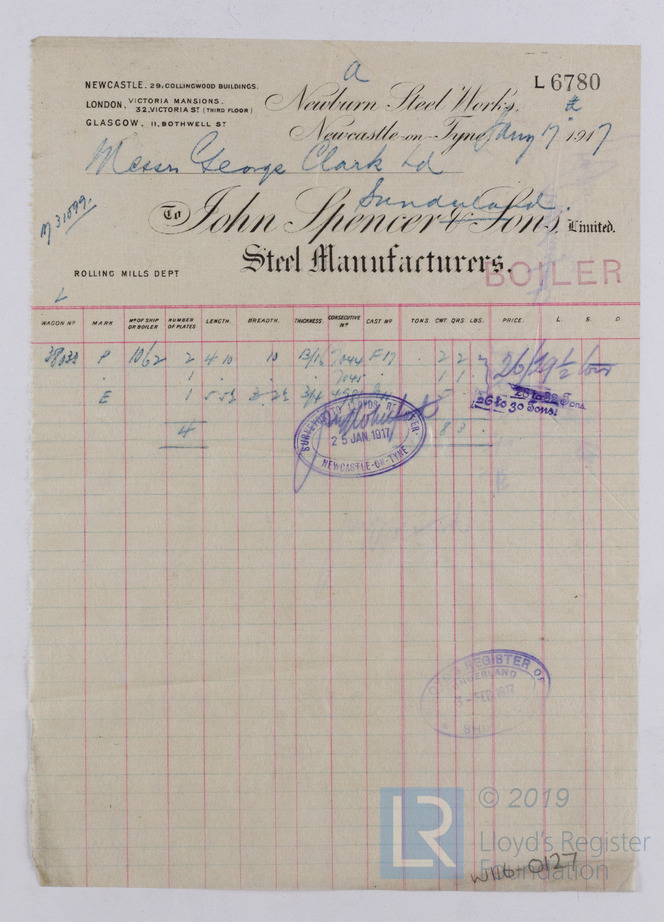 a
L 6780
NEWCASTLE. 29, COLLINGWOOD BUILDINGS.
LONDON, VICTORIA MANSIONS.
32, VICTORIA ST (THIRD FLOOR)
GLASGOW, 11, BOTHWELL ST
Newburn Steel Works.
Newcastle-on-Tyne 17 1917
Messrs George Clark Ld
Sunderland.
To John Spencer & Sons, Limited.
Steel Manufacturers.
BOILER
ROLLING MILLS DEPT
WAGON No MARK No OF SHIP OR BOILER NUMBER OF PLATES LENGTH. BREADTH. THICKNESS. CONSECUTIVE No CAST No TONS. CWT. QRS. LBS. PRICE. L. S. D.
P 1062 2 4 10 10 13/16 7044 F17 2 2 26/29½ tons
1 7045 1 1
E 1 3/4
26 to 30 Tons.
4 8 3
SURVEYOR TO LLOYDS REGISTER
25 JAN 1917
NEWCASTLE-ON-TYNE
REGISTER OF
SUNDERLAND
FEB 1917
© 2019
LR Lloyd's Register
Foundation
W116-0127